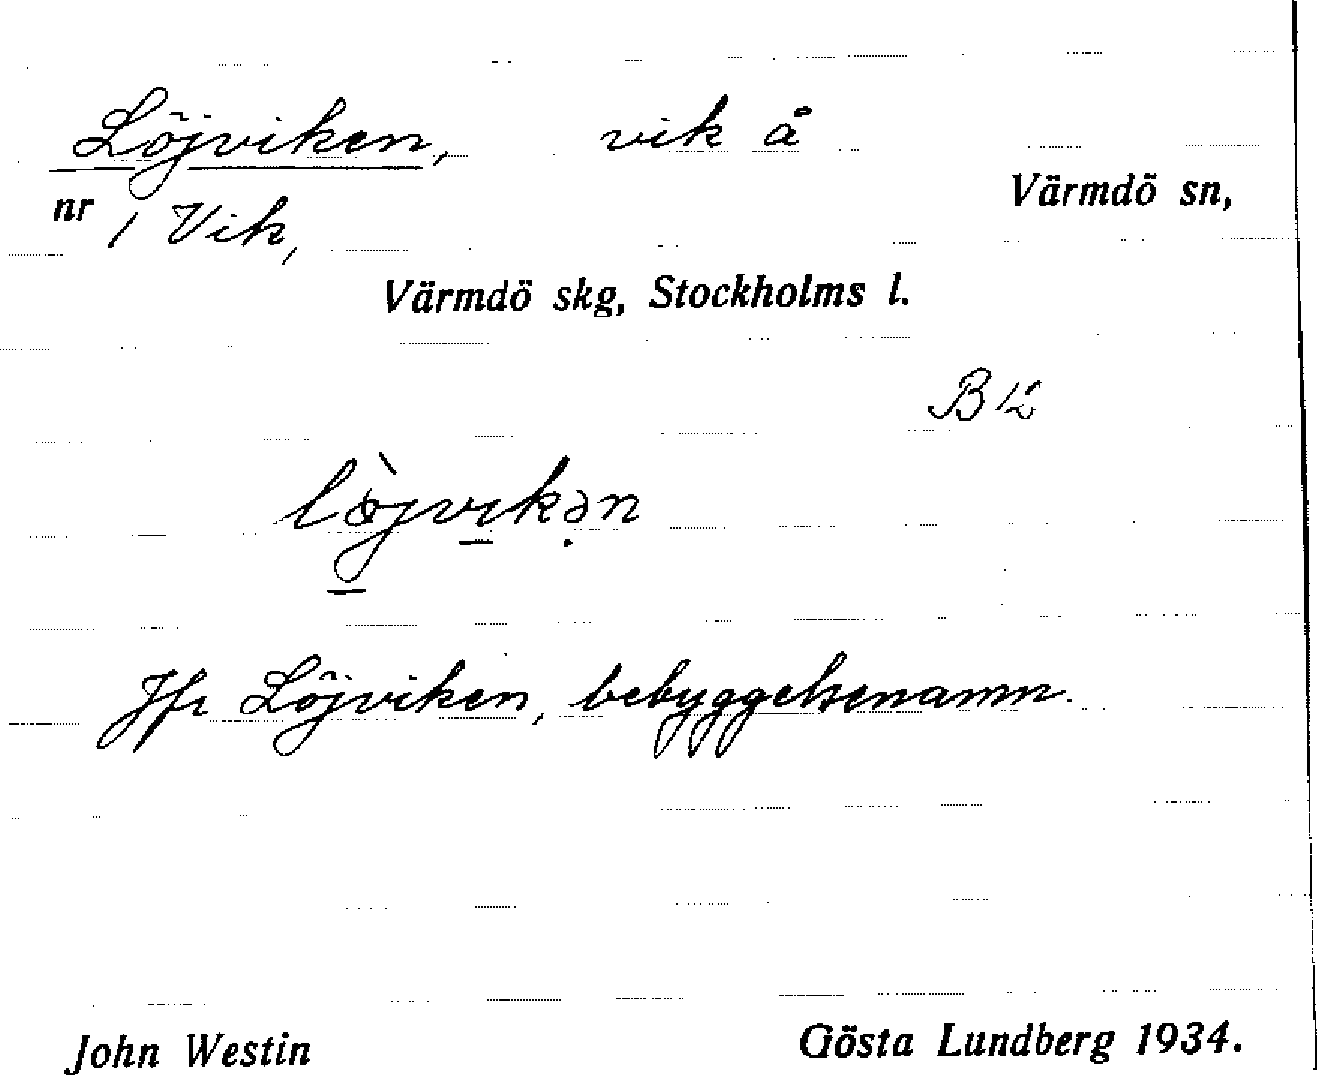 Löjviken, vik å
Värmdö sn,
nr 1 Vik,
Värmdö skg, Stockholms l.
lö̀jvikən
Jfr Löjviken, bebyggelsenamn.
John Westin Gösta Lundberg 1934.